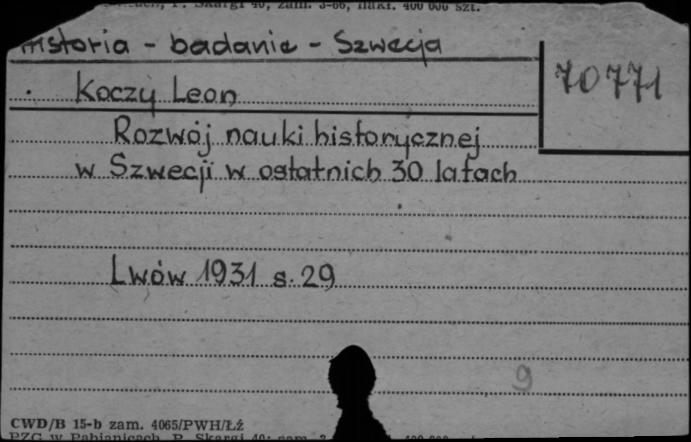 Skargi 40, zam. 3-66, nakł. 400 000 szt.
Historia - badanie - Szwecja
70771
Koczy Leon
Rozwój nauki historycznej
w Szwecji w ostatnich 30 latach
Lwów 1931 s. 29
9
CWD/B 15-b zam. 4065/PWH/Łź
PZG w Pabianicach, P. Skargi 40; zam. 3